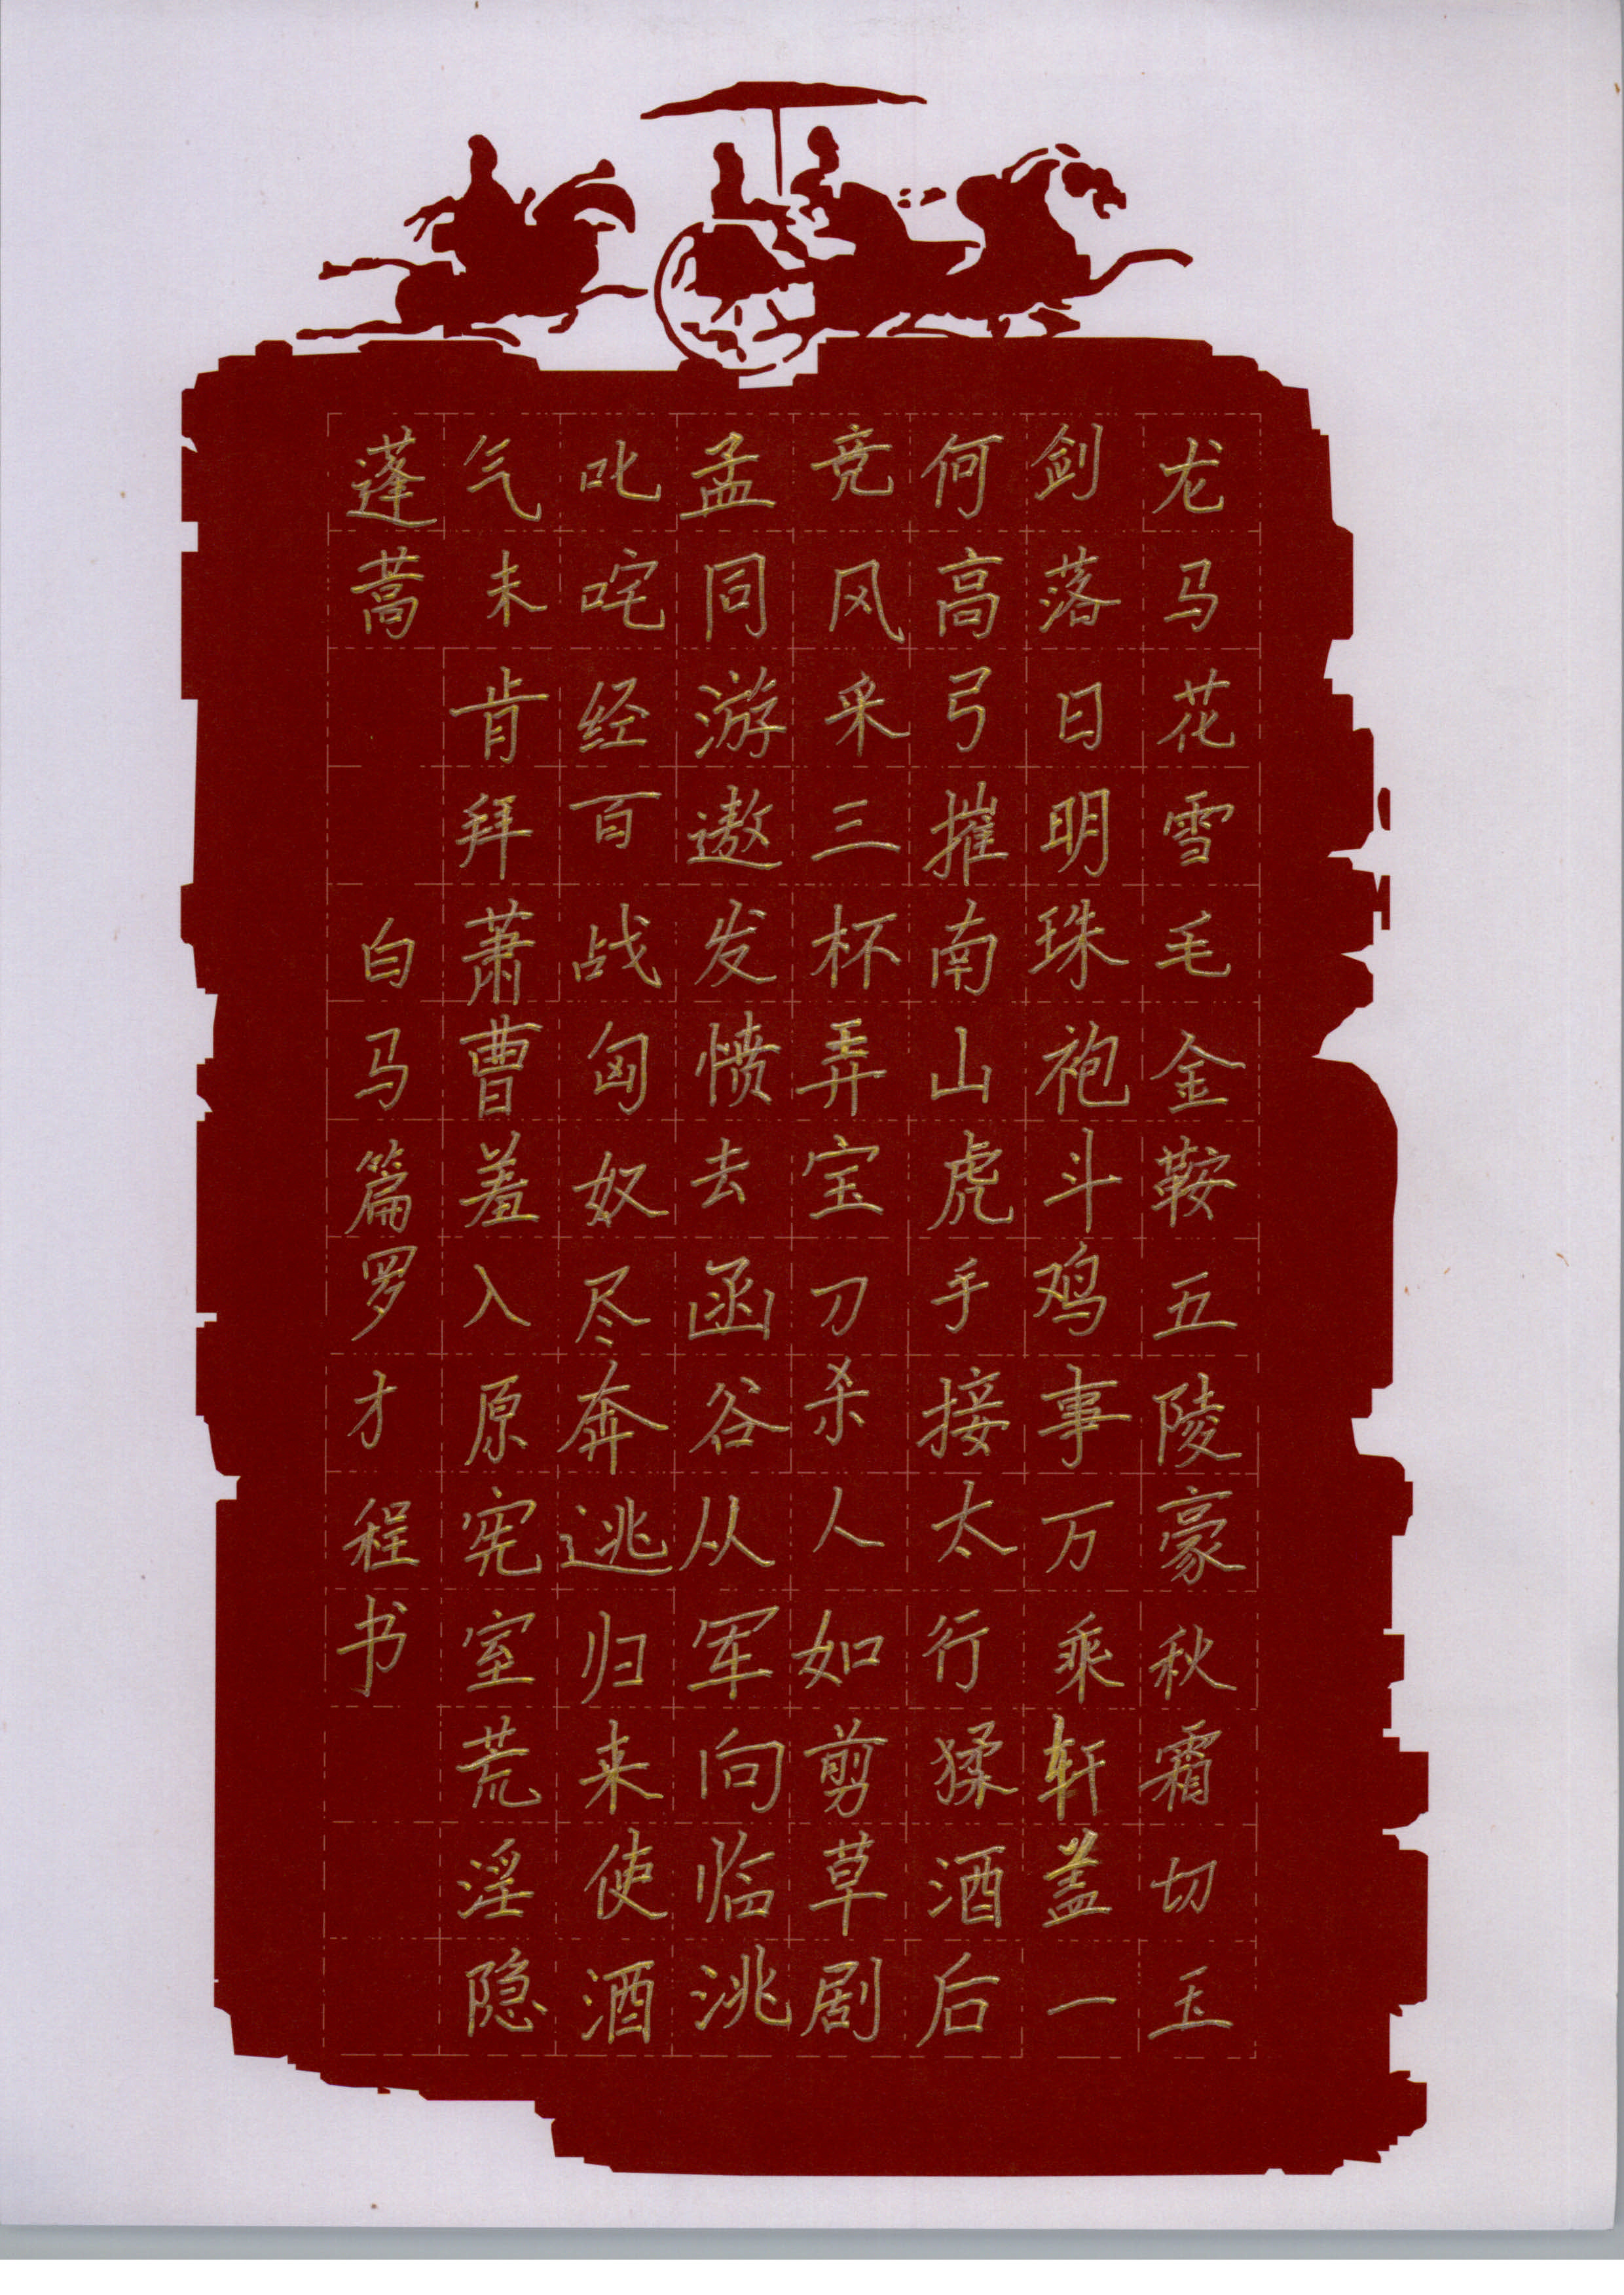 龙马花雪毛金鞍五陵豪秋霜切玉
剑落日明珠袍斗鸡事万乘轩盖一
何高弓摧南山虎手接太行猱酒后
竞风采三杯弄宝刀杀人如剪草剧
孟同游遨发愤去函谷从军向临洮
叱咤经百战匈奴尽奔逃归来使酒
气未肯拜萧曹羞入原宪室荒淫隐
蓬蒿 白马篇罗才程书